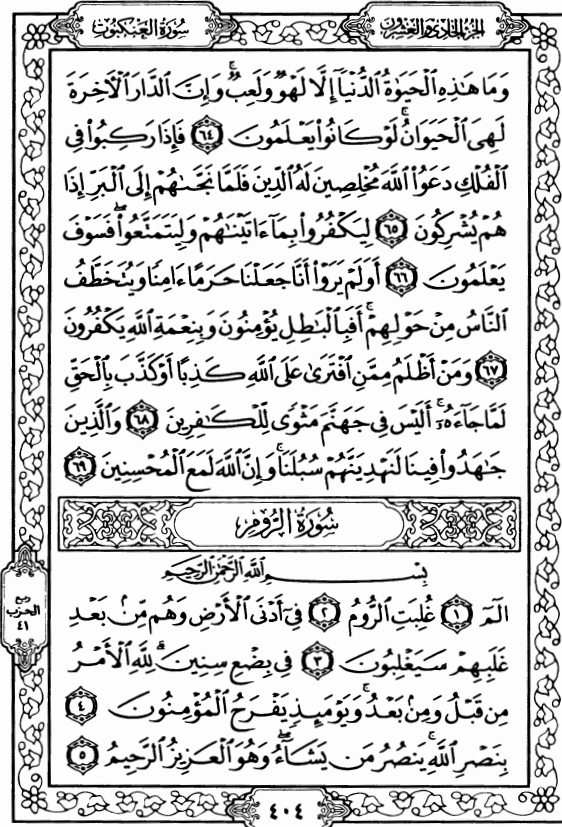 سُورَةُ العَنكَبُوتِ
الجُزْءُ الحَادِي وَالعِشْرُونَ
وَمَا هَـٰذِهِ ٱلْحَيَوٰةُ ٱلدُّنْيَآ إِلَّا لَهْوٌ وَلَعِبٌ ۚ وَإِنَّ ٱلدَّارَ ٱلْـَٔاخِرَةَ
لَهِىَ ٱلْحَيَوَانُ ۚ لَوْ كَانُوا۟ يَعْلَمُونَ ٦٤ فَإِذَا رَكِبُوا۟ فِى
ٱلْفُلْكِ دَعَوُا۟ ٱللَّهَ مُخْلِصِينَ لَهُ ٱلدِّينَ فَلَمَّا نَجَّىٰهُمْ إِلَى ٱلْبَرِّ إِذَا
هُمْ يُشْرِكُونَ ٦٥ لِيَكْفُرُوا۟ بِمَآ ءَاتَيْنَـٰهُمْ وَلِيَتَمَتَّعُوا۟ ۖ فَسَوْفَ
يَعْلَمُونَ ٦٦ أَوَلَمْ يَرَوْا۟ أَنَّا جَعَلْنَا حَرَمًا ءَامِنًا وَيُتَخَطَّفُ
ٱلنَّاسُ مِنْ حَوْلِهِمْ ۚ أَفَبِٱلْبَـٰطِلِ يُؤْمِنُونَ وَبِنِعْمَةِ ٱللَّهِ يَكْفُرُونَ
٦٧ وَمَنْ أَظْلَمُ مِمَّنِ ٱفْتَرَىٰ عَلَى ٱللَّهِ كَذِبًا أَوْ كَذَّبَ بِٱلْحَقِّ
لَمَّا جَآءَهُۥٓ ۚ أَلَيْسَ فِى جَهَنَّمَ مَثْوًى لِّلْكَـٰفِرِينَ ٦٨ وَٱلَّذِينَ
جَـٰهَدُوا۟ فِينَا لَنَهْدِيَنَّهُمْ سُبُلَنَا ۚ وَإِنَّ ٱللَّهَ لَمَعَ ٱلْمُحْسِنِينَ ٦٩
سُورَةُ الرُّومِ
بِسْمِ ٱللَّهِ ٱلرَّحْمَـٰنِ ٱلرَّحِيمِ
الٓمٓ ١ غُلِبَتِ ٱلرُّومُ ٢ فِىٓ أَدْنَى ٱلْأَرْضِ وَهُم مِّنۢ بَعْدِ
غَلَبِهِمْ سَيَغْلِبُونَ ٣ فِى بِضْعِ سِنِينَ ۗ لِلَّهِ ٱلْأَمْرُ
مِن قَبْلُ وَمِنۢ بَعْدُ ۚ وَيَوْمَئِذٍ يَفْرَحُ ٱلْمُؤْمِنُونَ ٤
بِنَصْرِ ٱللَّهِ ۚ يَنصُرُ مَن يَشَآءُ ۖ وَهُوَ ٱلْعَزِيزُ ٱلرَّحِيمُ ٥
ربع
الحزب
٤١
٤٠٤